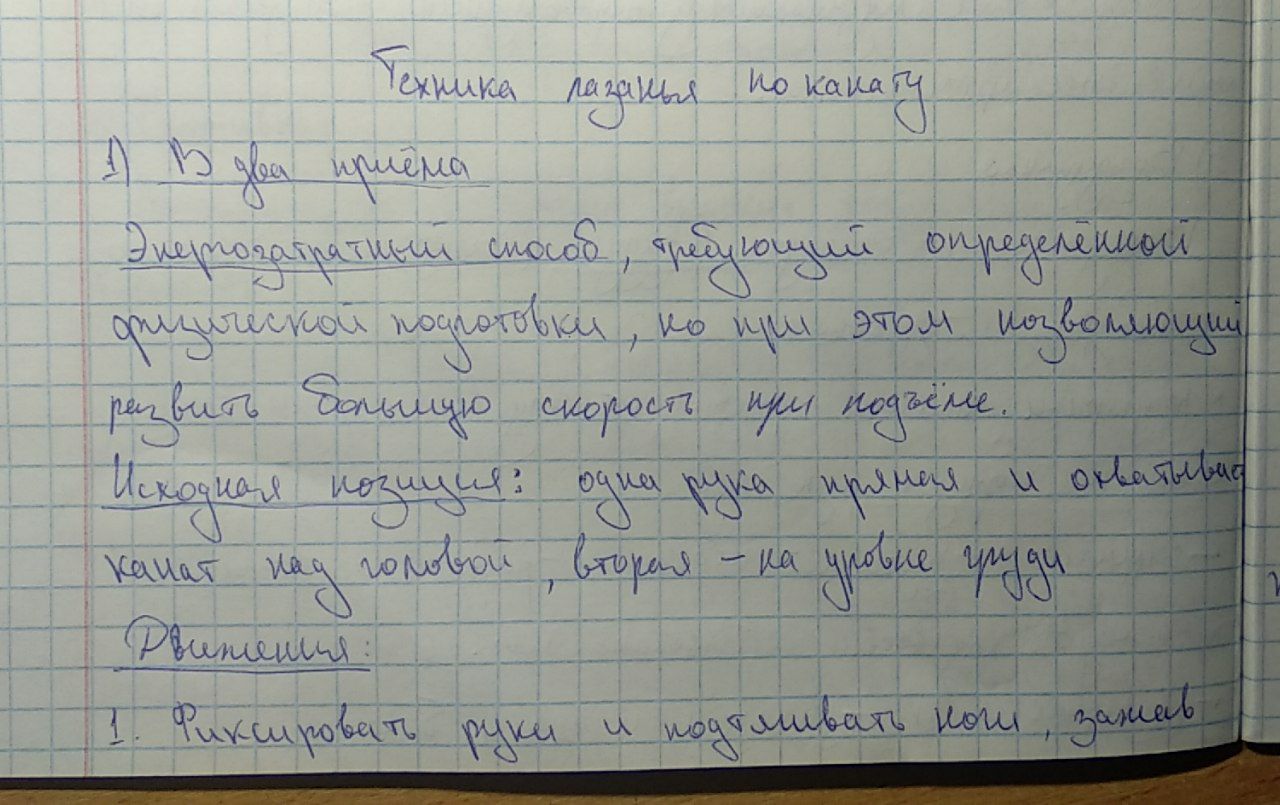 Техника лазанья по канату
1) В два приёма
Энергозатратный способ, требующий определённой
физической подготовки, но при этом позволяющий
развить большую скорость при подъёме.
Исходная позиция: одна рука прямая и охватывает
канат над головой, вторая – на уровне груди
Движения:
1. Фиксировать руки и подтягивать ноги, зажав